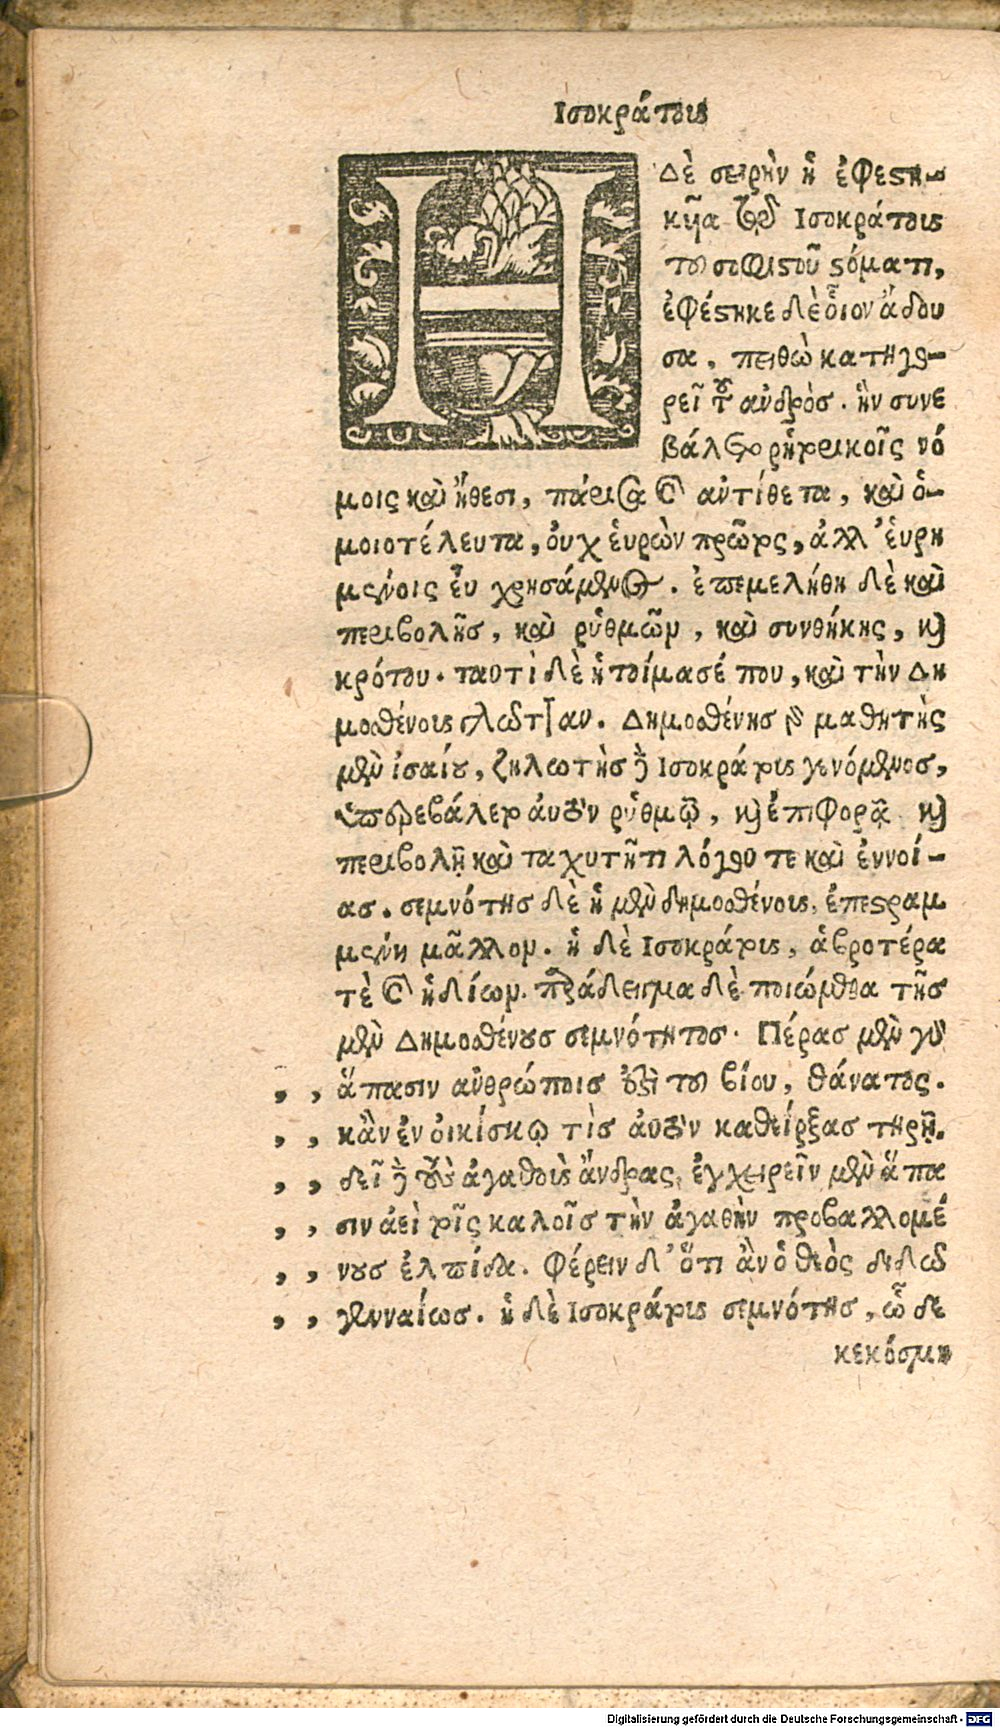 Ἰσοκράτους
Η δὲ σειρὴν ἡ ἐφεστη-
κυῖα τῷ Ἰσοκράτους
τοῦ σοφιστοῦ στόματι,
ἐφέστηκε δὲ οἷον ἄδου
σα, πειθὼ κατηγο-
ρεῖ τοῦ ἀνδρός. ἣν συνε
βάλετο ῥητορικοῖς νό
μοις καὶ ἤθεσι, πάρισα καὶ ἀντίθετα, καὶ ὁ-
μοιοτέλευτα, οὐχ εὑρὼν πρῶτος, ἀλλ' εὑρη
μένοις εὖ χρησάμενος. ἐπεμελήθη δὲ καὶ
περιβολῆς, καὶ ῥυθμῶν, καὶ συνθήκης, καὶ
κρότου. ταυτὶ δὲ ἡτοίμασέ που, καὶ τὴν Δη
μοσθένους γλῶτταν. Δημοσθένης γὰρ μαθητὴς
μὲν ἰσαίου, ζηλωτὴς δὲ Ἰσοκράτους γενόμενος,
ὑπερεβάλετο αὐτὸν ῥυθμῷ, καὶ ἐπιφορᾷ καὶ
περιβολῇ καὶ ταχυτῆτι λόγου τε καὶ ἐννοί-
ας. σεμνότης δὲ ἡ μὲν δημοσθένους, ἐπεστραμ
μένη μᾶλλον. ἡ δὲ Ἰσοκράτους, ἁβροτέρα
τὲ καὶ ἡδίων. παράδειγμα δὲ ποιώμεθα τῆς
μὲν Δημοσθένους σεμνότητος. Πέρας μὲν γὰρ
,, ἅπασιν ἀνθρώποις ἐστὶ τοῦ βίου, θάνατος.
,, κἂν ἐν οἰκίσκῳ τὶς αὐτὸν καθείρξας τηρῇ.
,, δεῖ δὲ τοὺς ἀγαθοὺς ἄνδρας, ἐγχειρεῖν μὲν ἅπα
,, σιν ἀεὶ τοῖς καλοῖς τὴν ἀγαθὴν προβαλλομέ
,, νους ἐλπίδα. φέρειν δ' ὅτι ἂν ὁ θεὸς διδῷ
,, γενναίως. ἡ δὲ Ἰσοκράτους σεμνότης, ὧδε
κεκόσμη
Digitalisierung gefördert durch die Deutsche Forschungsgemeinschaft - DFG